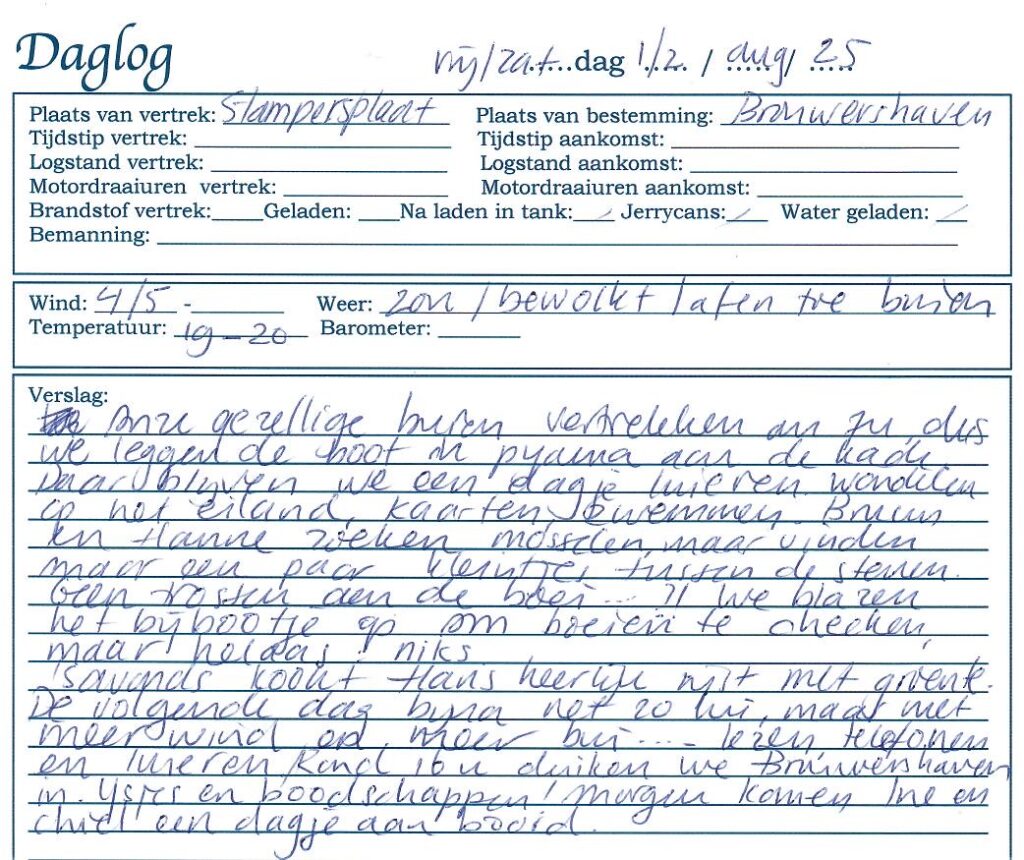 Daglog
vrij/zat.....dag 1/2 / aug / 25
Plaats van vertrek: Stampersplaat Plaats van bestemming: Brouwershaven
Tijdstip vertrek: Tijdstip aankomst:
Logstand vertrek: Logstand aankomst:
Motordraaiuren vertrek: Motordraaiuren aankomst:
Brandstof vertrek: Geladen: Na laden in tank: Jerrycans: Water geladen:
Bemanning:
Wind: 4/5 - Weer: zon / bewolkt / af en toe buien
Temperatuur: 19-20 Barometer:
Verslag:
Onze gezellige buren vertrekken om 7u, dus
we leggen de boot in pyama aan de kade
Daar blijven we een dagje luieren. wandelen
op het eiland, kaarten, zwemmen. Bruun
en Hanne zoeken mosselen, maar vinden
maar een paar kleintjes tussen de stenen.
Geen trossen aan de boei ... ?! We blazen
het bijbootje op om boeien te checken,
maar helaas! niks
's avonds kookt Hans heerlijk rijst met groente.
De volgende dag bijna net zo lui, maar met
meer wind en meer bui .... lezen, telefonen
en luieren. Rond 16u duiken we Brouwershaven
in. Ysjes en boodschappen! Morgen komen Ine en
Chiel een dagje aan boord.